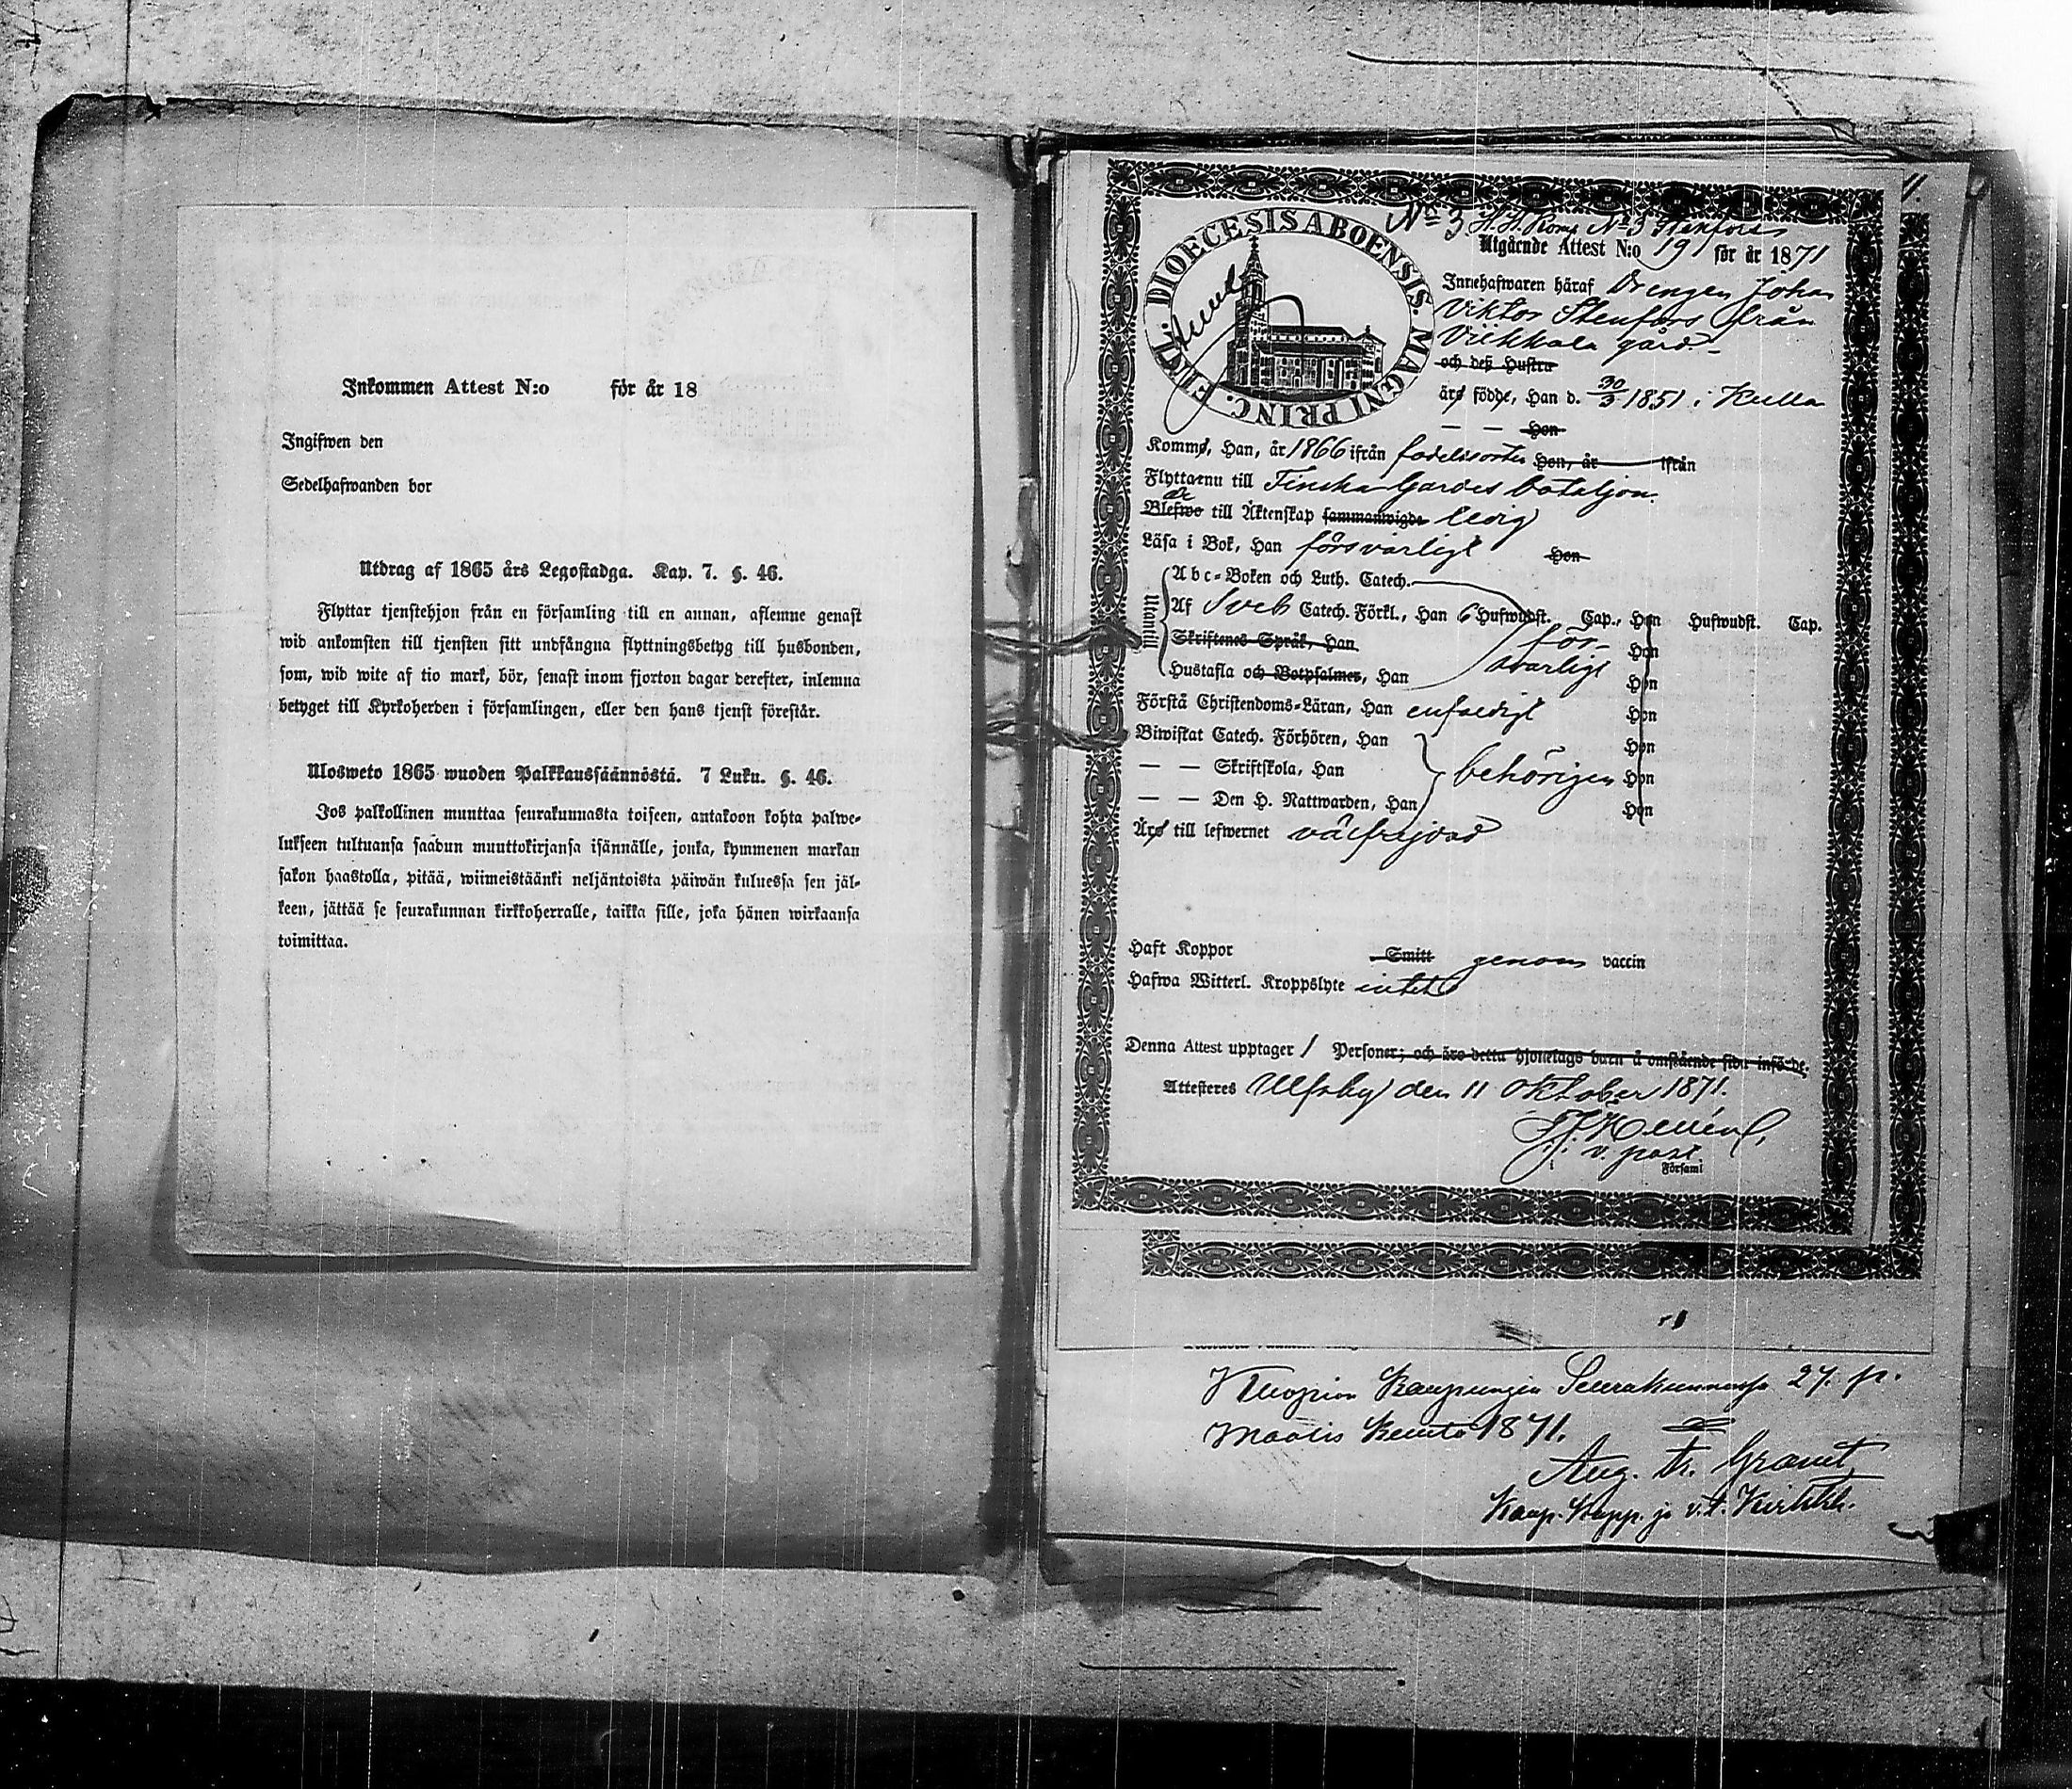 Inkommen Attest N:o för år 18
Ingifwen den
Sedelhafwanden bor
Utdrag af 1865 års Legostadga. Kap. 7. §. 46.
Flyttar tjenstehjon från en församling till en annan, aflemne genast
wid ankomsten till tjensten sitt undfångna flyttningsbetyg till husbonden,
som, wid wite af tio mark, bör, senast inom fjorton dagar derefter, inlemna
betyget till Kyrkoherden i församlingen, eller den hans tjenst förestår.
Ulosweto 1865 wuoden Palkkaussäännöstä. 7 Luku. §. 46.
Jos palkollinen muuttaa seurakunnasta toiseen, antakoon kohta palwe-
lukseen tultuansa saadun muuttokirjansa isännälle, jonka, kymmenen markan
sakon haastolla, pitää, wiimeistäänki neljäntoista päiwän kuluessa sen jäl-
keen, jättää se seurakunnan kirkkoherralle, taikka sille, joka hänen wirkaansa
toimittaa.
11.
No 3 Komp No 3 Stenfors
DIOECESIS ABOENSIS. MAGNI PRINC. FINL.
Utgående Attest N:o 191 för år 1871
Innehafwaren häraf Drengen Johan
Viktor Stenfors från
Viikkala gård
och deß Hustru
äro födde, Han d. 30/3 1851 i Kulla
— — Hon
Kommo, Han, år 1866 ifrån födelseorten Hon, år ifrån
Flytta nu till Finska Gardes bataljon.
Blefwo till Äktenskap sammanwigde ledig
Läsa i Bok, Han försvarligt Hon
Utantill
Abc-Boken och Luth. Catech.
Af Sveb Catech. Förkl., Han 6 Hufwudst. Cap., Hon Hufwudst. Cap.
Skriftenes Språk, Han för- Hon
Hustafla och Botpsalmer, Han svarligt Hon
Förstå Christendoms-Läran, Han enfaldigt Hon
Biwistat Catech. Förhören, Han Hon
— — Skriftskola, Han behörigen Hon
— — Den H. Nattwarden, Han Hon
Äro till lefwernet välfrejdad
Haft Koppor Smitt genom vaccin
Hafwa Witterl. Kroppslyte intet
Denna Attest upptager 1 Personer; och äro detta hjonelags barn å omstående sida införde.
Attesteres Ulfsby den 11 Oktober 1871.
v. past.
Församl
Kuopion Kaupungin Seurakunnassa 27. p.
Maalis Kuuta 1871.
Aug. Fr. Granit
Kaup. Kapp. ja v.t. Kirkkh.